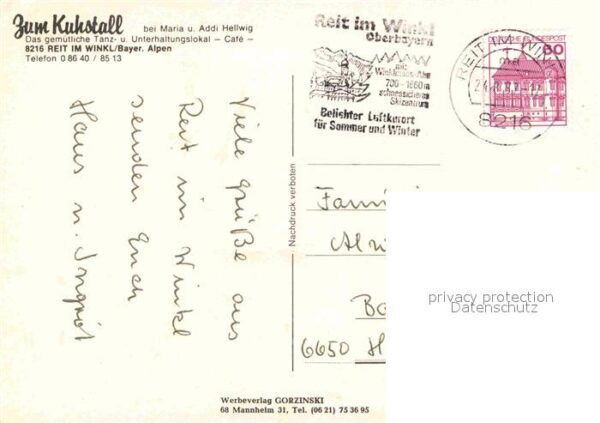 Zum Kuhstall bei Maria u. Addi Hellwig
Das gemütliche Tanz- u. Unterhaltungslokal – Café –
8216 REIT IM WINKL/Bayer. Alpen
Telefon 0 86 40 / 85 13
Reit im Winkl
Oberbayern
mit
Winklmoos-Alm
700-1860 m
schneesicheres
Skizentrum
Beliebter Luftkurort
für Sommer und Winter
DEUTSCHE BUNDESPOST
80
REIT IM WINKL
8216
Viele Grüße aus
Reit im Winkl
senden Euch
Haus u. Ingrid
Nachdruck verboten
Famil
Alw
Bo
6650 H
privacy protection
Datenschutz
Werbeverlag GORZINSKI
68 Mannheim 31, Tel. (06 21) 75 36 95